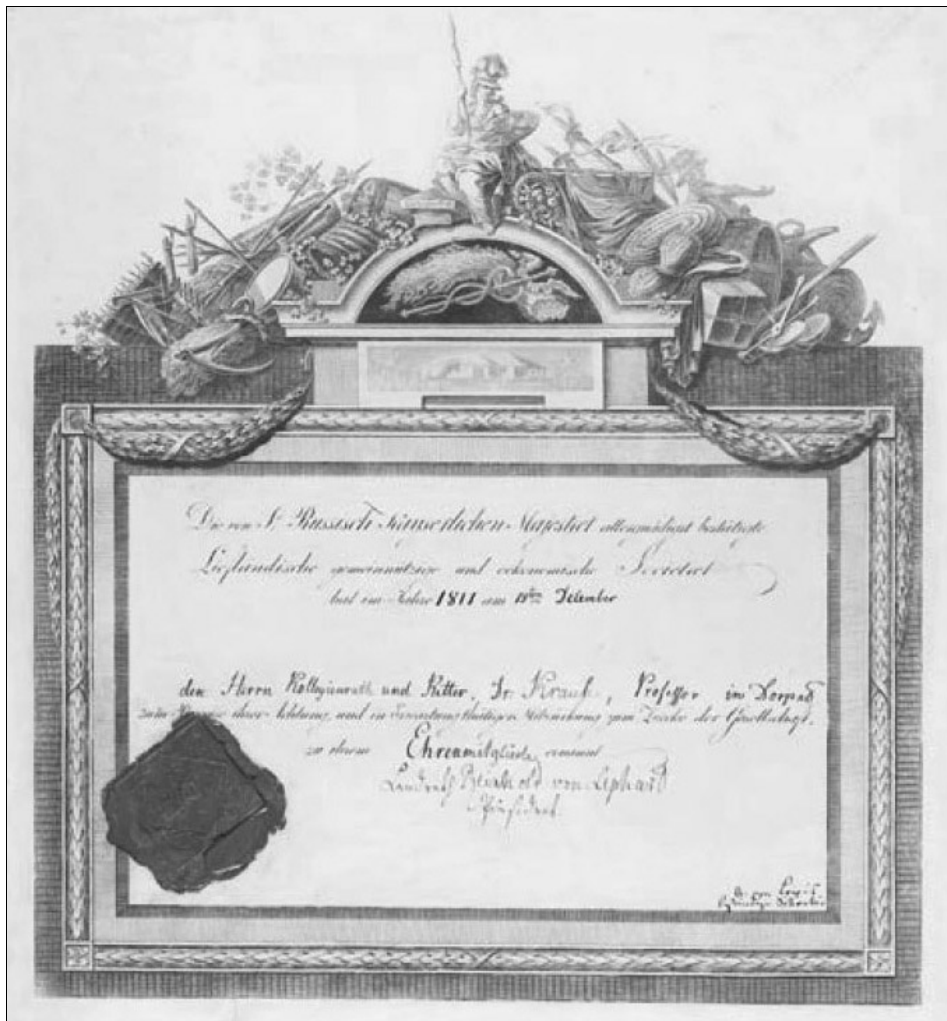 Die von Sr. Russisch Kayserlichen Majestaet allergnädigst bestätigte
Liefländische gemeinnützige und oekonomische Societaet
hat im Jahre 1811 am 18ten December
den Herrn Kollegienrath und Ritter, Dr. Krause, Professor in Dorpat
zum ihrer Achtung, und in Erwartung thätiger Mitwirkung zum Zwecke der Gesellschaft,
zu ihrem Ehrenmitgliede, ernannt
Landrath Reinhold von Liphard
Präsident.
von Löwis
Secretär